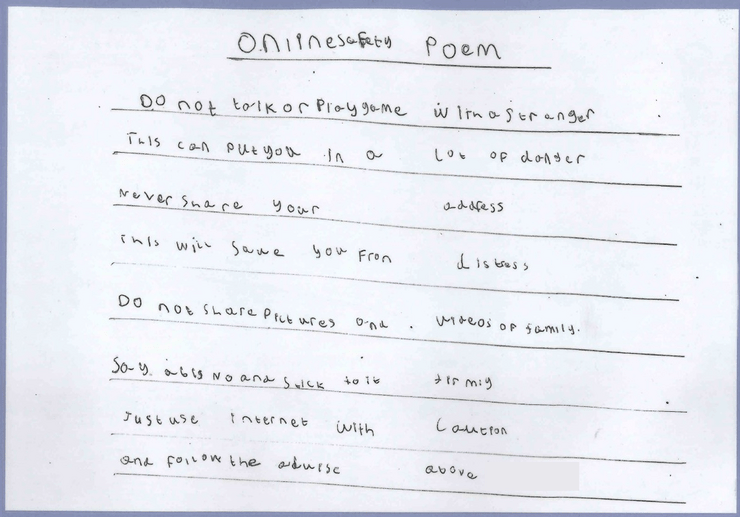 Onlinesafety Poem
Do not talk or Play game with a stranger
This can put you in a lot of danger
Never share your address
This will save you from distress
Do not share Pictures and videos of family.
Say a big No and stick to it firmly
Just use internet with caution
and follow the advise above